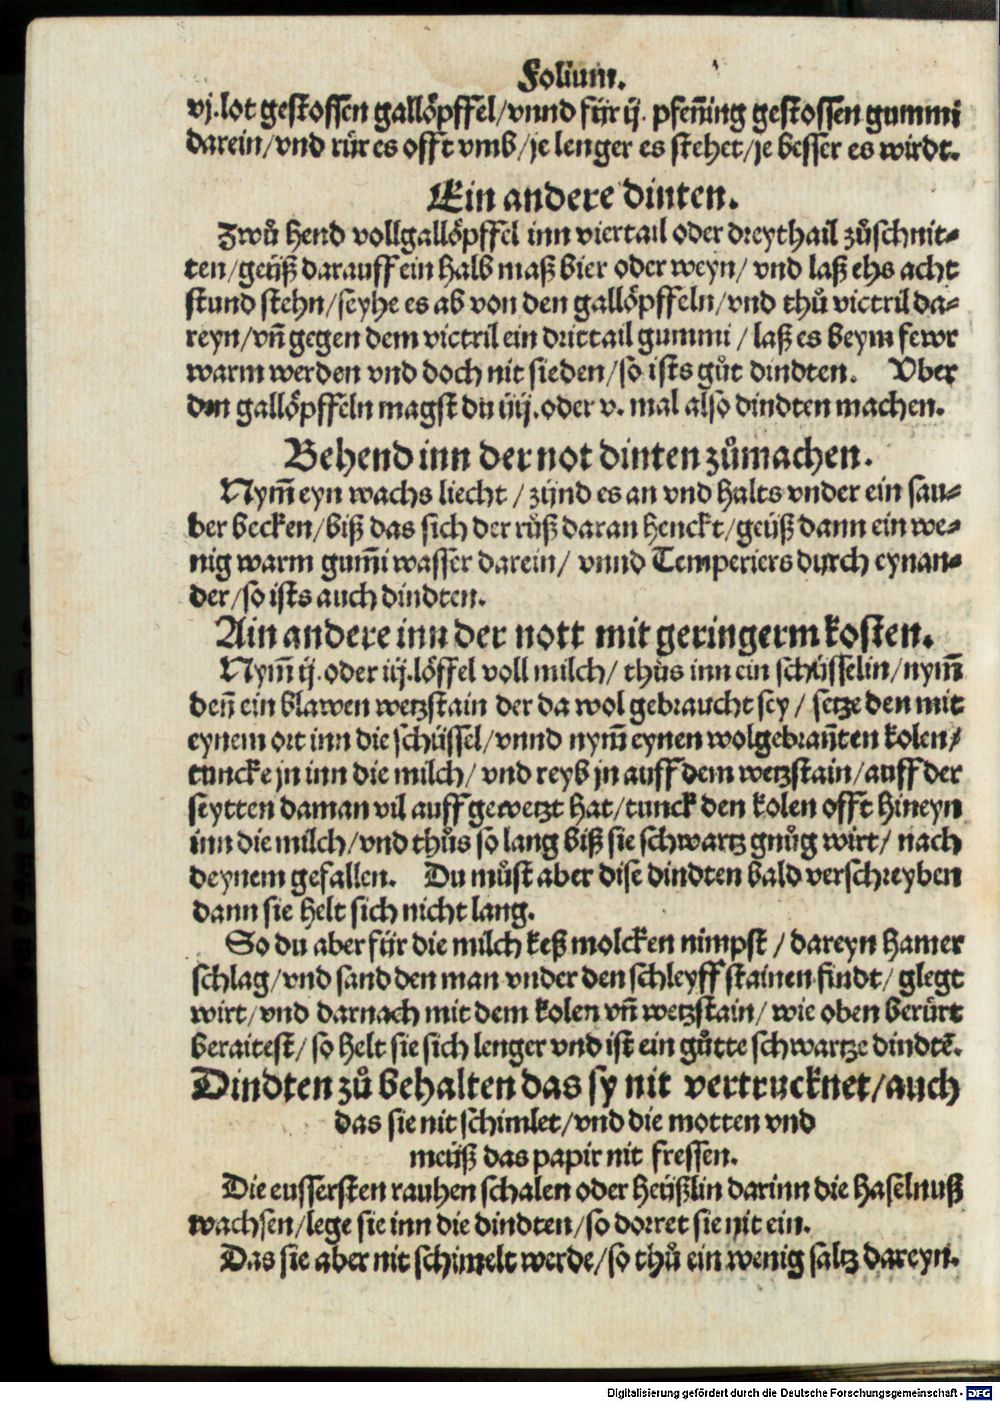 Folium.
vj.lot gestossen gallöpffel/vnnd für ij. pfen̄ing gestossen gummi
darein/vnd rür es offt vmb/je lenger es stehet/je besser es wirdt.
Ein andere dinten.
Zwů hend vollgallöpffel inn viertail oder dreythail zůschnit⸗
ten/geüß darauff ein halb maß bier oder weyn/ vnd laß ehs acht
stund stehn/seyhe es ab von den gallöpffeln/vnd thů victril da⸗
reyn/vn̄ gegen dem victril ein drittail gummi / laß es beym fewr
warm werden vnd doch nit sieden/so ists gůt dindten. Vber
den gallöpffeln magst du iiij.oder v. mal also dindten machen.
Behend inn der not dinten zůmachen.
Nym̄ eyn wachs liecht / zünd es an vnd halts vnder ein sau⸗
ber becken/biß das sich der růß daran henckt/geüß dann ein we⸗
nig warm gum̄i wasser darein/ vnnd Temperiers durch eynan⸗
der/so ists auch dindten.
Ain andere inn der nott mit geringerm kosten.
Nym̄ ij.oder iij.löffel voll milch/ thůs inn ein schüsselin/nym̄
den̄ ein blawen wetzstain der da wol gebraucht sey / setze den mit
eynem ort inn die schüssel/vnnd nym̄ eynen wolgebran̄ten kolen/
tuncke jn inn die milch/ vnd reyb jn auff dem wetzstain/auff der
seytten daman vil auff gewetzt hat/tunck den kolen offt hineyn
inn die milch/vnd thůs so lang biß sie schwartz gnůg wirt/ nach
deynem gefallen. Du můst aber dise dindten bald verschreyben
dann sie helt sich nicht lang.
So du aber für die milch keß molcken nimpst / dareyn hamer
schlag/vnd sand den man vnder den schleyff stainen findt/ glegt
wirt/vnd darnach mit dem kolen vn̄ wetzstain/ wie oben berürt
beraitest/ so helt sie sich lenger vnd ist ein gůtte schwartze dindtē.
Dindten zů behalten das sy nit vertrucknet/auch
das sie nit schimlet/vnd die motten vnd
meüß das papir nit fressen.
Die eussersten rauhen schalen oder heüßlin darinn die haselnuß
wachsen/lege sie inn die dindten/so dorret sie nit ein.
Das sie aber nit schimelt werde/so thů ein wenig saltz dareyn.
Digitalisierung gefördert durch die Deutsche Forschungsgemeinschaft - DFG